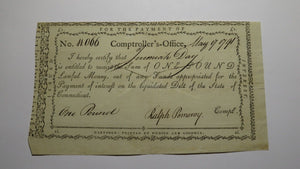 FOR THE PAYMENT OF
No. 11066 Comptroller's-Office, May 9 1791
Jeremiah Day
is entitled to receive the Sum of ONE POUND
Lawful Money, out of any Funds appropriated for the
Payment of interest on the liquidated Debt of the State of
Connecticut.
One Pound Ralph Pomeroy Compt.
HARTFORD: PRINTED BY HUDSON AND GOODWIN.